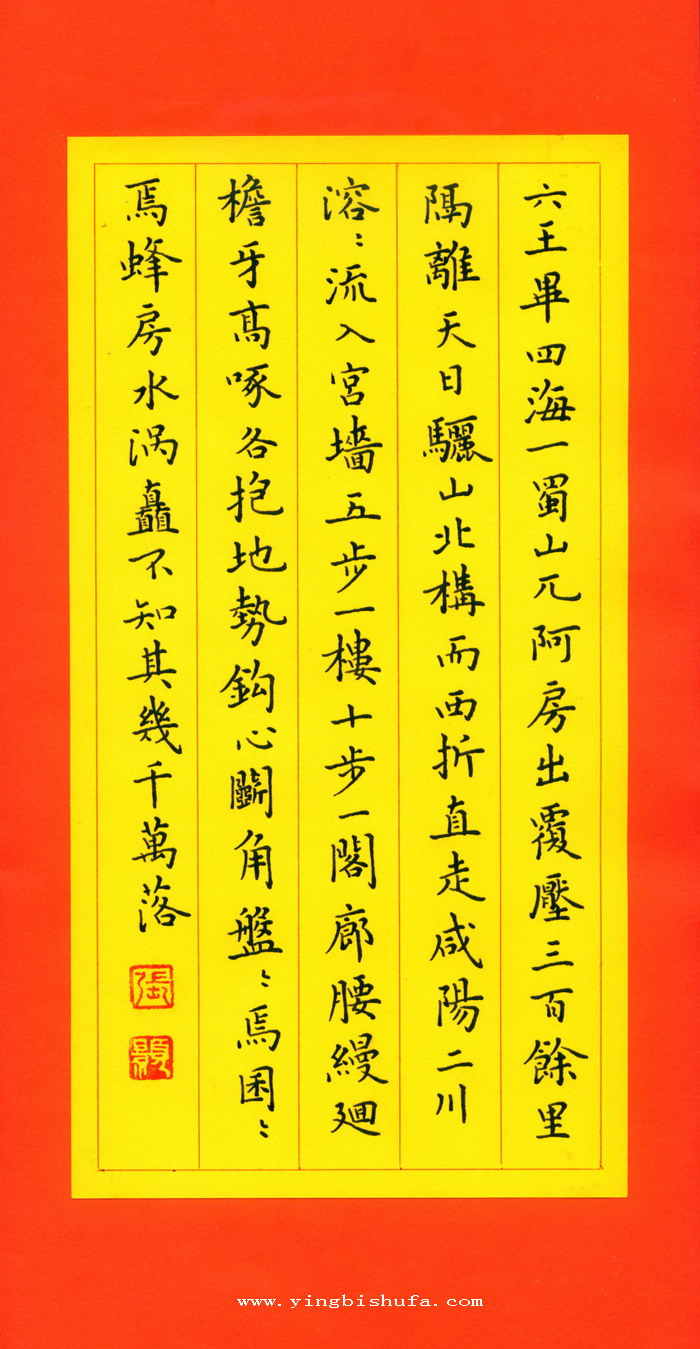 六王畢四海一蜀山兀阿房出覆壓三百餘里
隔離天日驪山北構而西折直走咸陽二川
溶〻流入宮墻五步一樓十步一閣廊腰縵廻
檐牙髙啄各抱地勢鈎心鬭角盤〻焉囷〻
焉蜂房水涡矗不知其幾千萬落
張
顥
www.yingbishufa.com